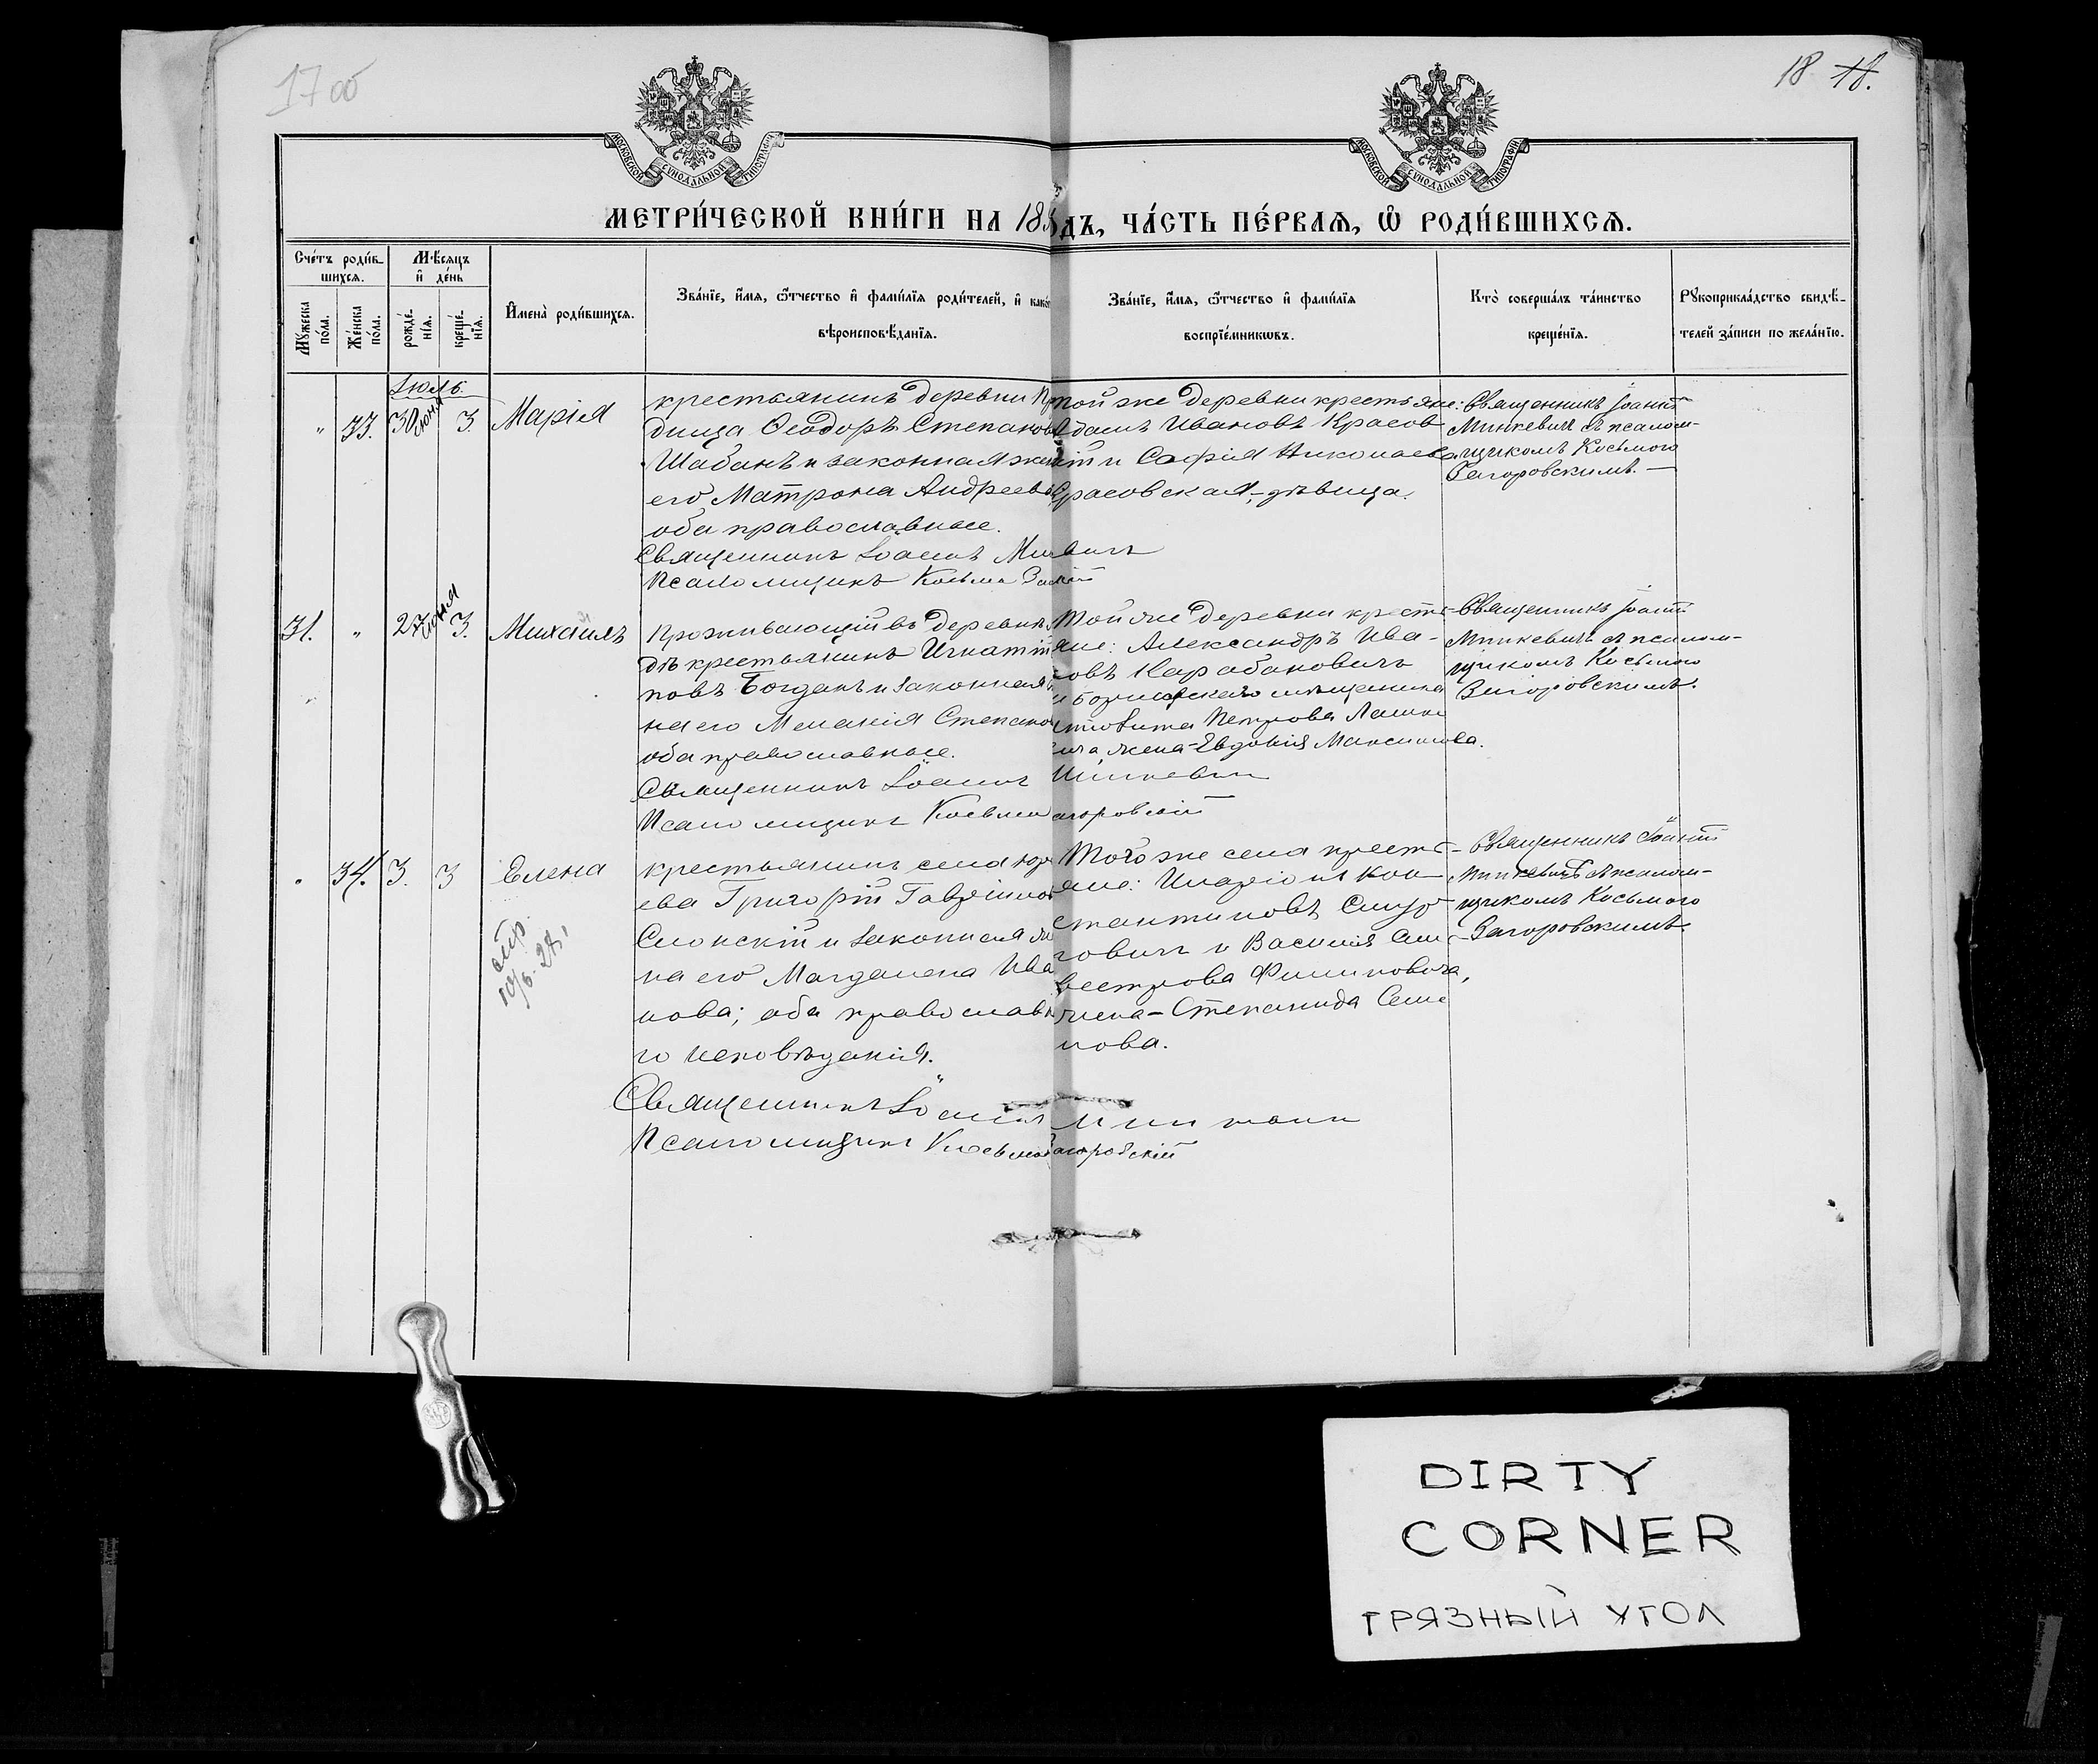 17 об
18 18.
МОСКОВСКОЙ СѴНОДАЛЬНОЙ ТИПОГРАФІИ
МОСКОВСКОЙ СѴНОДАЛЬНОЙ ТИПОГРАФІИ
МЕТРИ́ЧЕСКОЙ КНИ́ГИ НА 18
дъ, ЧА́СТЬ ПЕ́РВАѦ, Ѡ҆ РОДИ́ВШИХСѦ.
Сче́тъ роди́в-
шихсѧ.
Мꙋ́жеска по́ла.
Же́нска по́ла.
Мѣ́сѧцъ
и҆ де́нь
рожде́-
нїѧ.
креще́-
нїѧ.
И҆мена̀ роди́вшихсѧ.
Зва́нїе, и҆́мѧ, ѻ҆́тчество и҆ фами́лїѧ роди́телей, и҆ како́
вѣроисповѣ́данїѧ.
Зва́нїе, и҆́мѧ, ѻ҆́тчество и҆ фами́лїѧ
воспрїе́мникѡвъ.
Кто̀ соверша́лъ та́инство
креще́нїѧ.
Рꙋкоприкла́дство свидѣ́-
телей за́писи по жела́нїю.
Іюль
" 33. 30 Июня 3. Марія
крестьянинъ деревни
дища Ѳеодоръ Степановъ
Шабанъ и законная жена
его Матрона Андреева
оба православные.
Священникъ Іоаннъ
Псаломщикъ Косьма
той же деревни крестьяне:
Адамъ Ивановъ Красов
и Софія Николаева
Красовская, дѣвица.
Священникъ Іоаннъ
Минкевичъ съ псалом-
щикомъ Косьмою
Загоровскимъ.
31. " 27 июня 3. Михаилъ
Проживающій въ деревнѣ
дѣ крестьянинъ Игнатій
новъ Богданъ и законная
на его Меланія Степанова
оба православные.
Священникъ Іоаннъ Минкевичъ
Псаломщикъ Косьма Загоровскій
Той же деревни кресть-
яне: Александръ Ива-
новъ Карабановичъ
и мѣщанина
Петрова
жена Евдокія Максимова.
Священникъ Іоаннъ
Минкевичъ съ псалом-
щикомъ Косьмою
Загоровскимъ.
" 34. 3. 3 Елена
крестьянинъ села
ева Григорій Гавріиловъ
Слонскій и законная же
на его Магдалена Ива
нова; оба православна
го исповѣданія.
Священникъ Іоаннъ Минкевичъ
Псаломщикъ Косьма Загоровскій
Того же села кресть-
яне: Иларіонъ Кон
стантиновъ
говичъ и Василія Сили-
вестрова Филиповича,
жена - Степанида Семе
нова.
Священникъ Іоаннъ
Минкевичъ съ псалом-
щикомъ Косьмою
Загоровскимъ.
DIRTY
CORNER
ГРЯЗНЫЙ УГОЛ